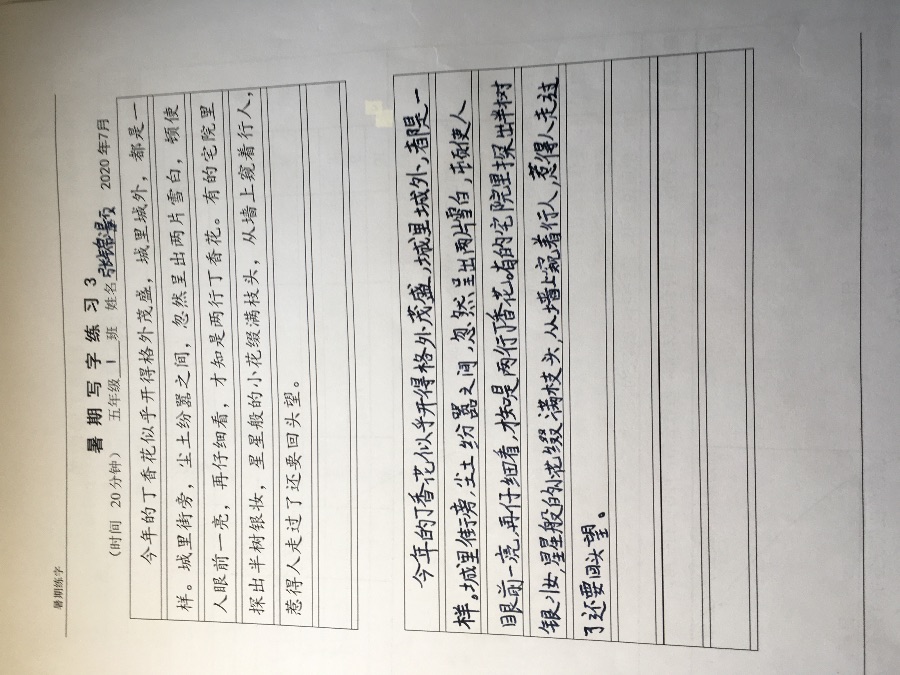 暑期练字
暑期写字练习3
（时间 20分钟） 五年级 1 班 姓名 张锦 2020年7月
今年的丁香花似乎开得格外茂盛，城里城外，都是一
样。城里街旁，尘土纷嚣之间，忽然呈出两片雪白，顿使
人眼前一亮，再仔细看，才知是两行丁香花。有的宅院里
探出半树银妆，星星般的小花缀满枝头，从墙上窥着行人，
惹得人走过了还要回头望。
今年的丁香花似乎开得格外茂盛，城里城外，都是一
样。城里街旁，尘土纷嚣之间，忽然呈出两片雪白，顿使人
眼前一亮，再仔细看，才知是两行丁香花。有的宅院里探出半树
银妆，星星般的小花缀满枝头，从墙上窥着行人，惹得人走过
了还要回头望。